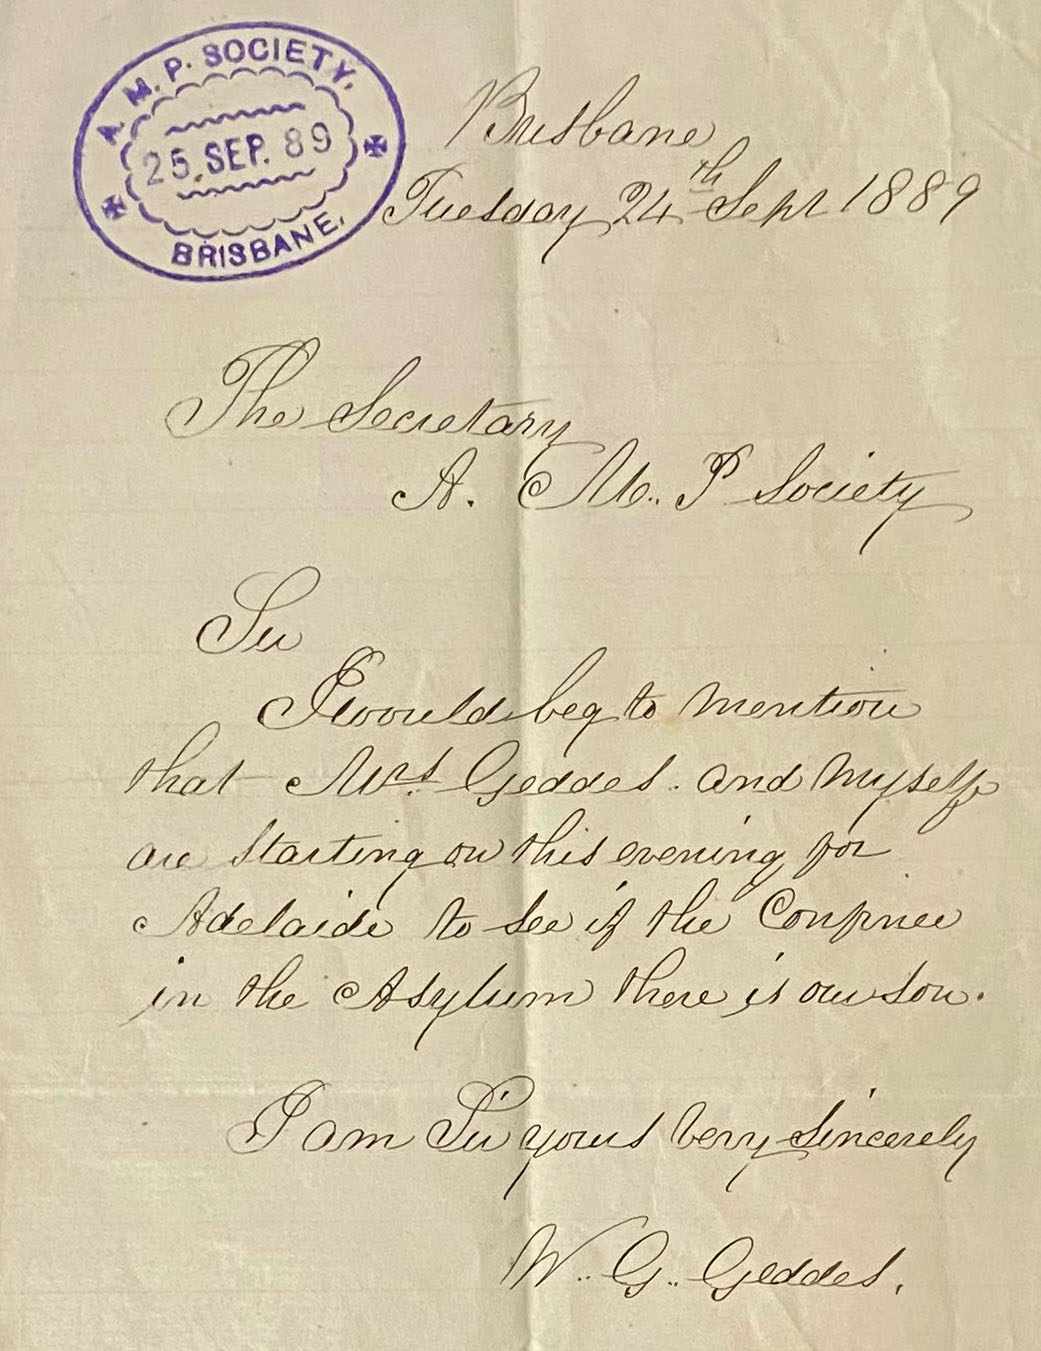 A. M. P. SOCIETY.
25. SEP. 89
BRISBANE.
Brisbane
Tuesday 24th Sept 1889
The Secretary
A. M. P Society
Sir
I would beg to mention
that Mrs. Geddes. and myself
are starting on this evening for
Adelaide to see if the Confinee
in the Asylum there is our son.
I am Sir yours very sincerely
W. G. Geddes.